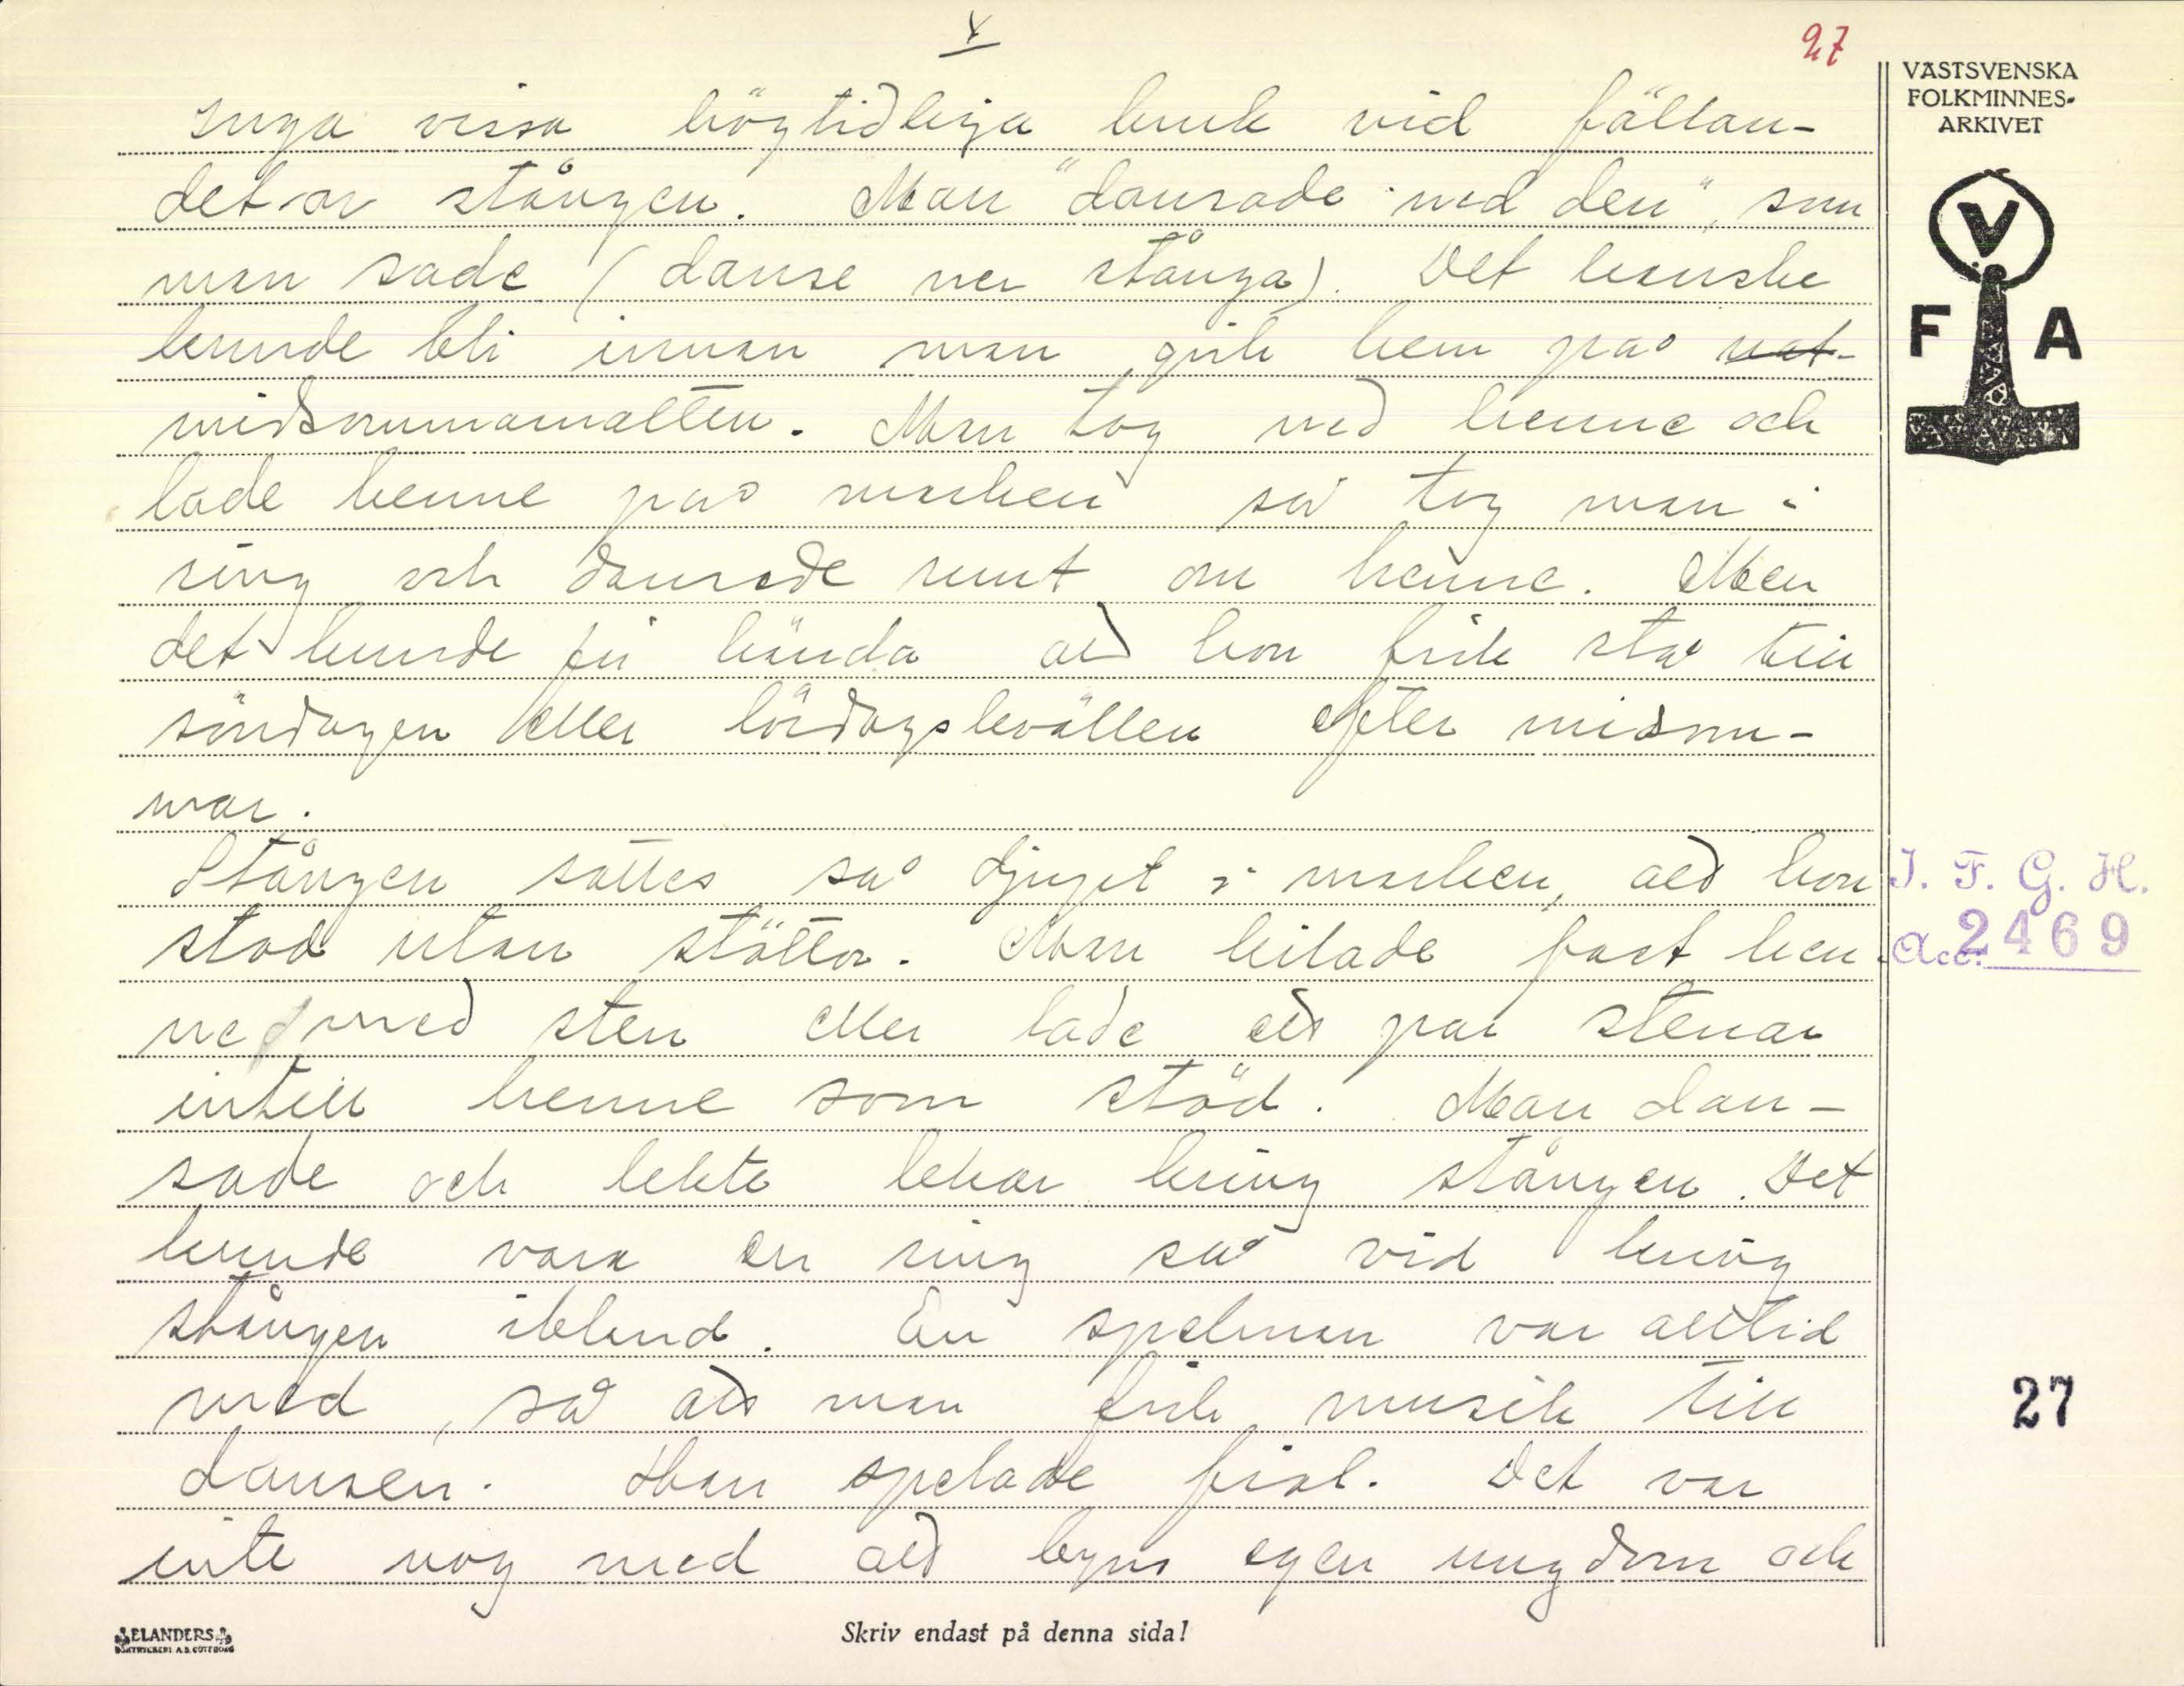 27
VÄSTSVENSKA
FOLKMINNES-
ARKIVET
V
F A
Inga vissa högtidliga bruk vid fällan-
det av stången. Man "dansade ned den", som
man sade (danse ner stånga). Det kanske
kunde bli innan man gick hem på nat-
midsommarnatten. Man tog ned henne och
lade henne på marken så tog man i
ring och dansade runt om henne. Men
det kunde ju hända att hon fick stå till
söndagen eller lördagskvällen efter midsom-
mar.
Stången sattes så djupt i marken, att hon
stod utan stöttor. Man kilade fast hen
ne med sten eller lade ett par stenar
intill henne som stöd. Man dan-
sade och lekte lekar kring stången. Det
kunde vara en ring så vid kring
stången ibland. En spelman var alltid
med, så att man fick musik till
dansen. Han spelade fiol. Det var
inte nog med att byns egen ungdom och
I. F. G. H.
Acc. 2469
27
ELANDERS
BOKTRYCKERI A.B. GÖTEBORG
Skriv endast på denna sida!